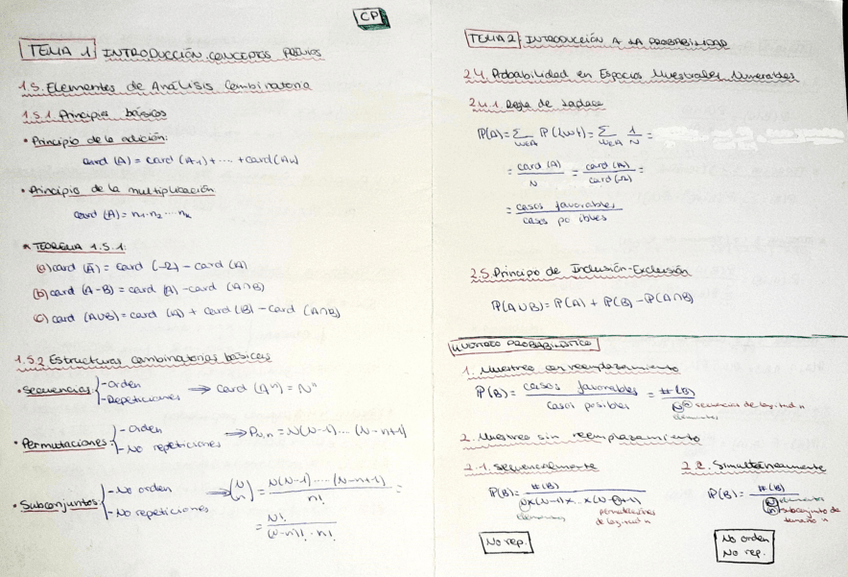 CP
TEMA 1: INTRODUCCIÓN. CONCEPTOS PREVIOS
1.5. Elementos de Análisis Combinatoria
1.5.1. Principios básicos
• Principio de la adición:
card (A) = card (A₁) + ... + card (Aₖ)
• Principio de la multiplicación
card (A) = n₁·n₂ ... nₖ
* TEOREMA 1.5.1:
(a) card (Ā) = card (Ω) - card (A)
(b) card (A-B) = card (A) - card (A∩B)
(c) card (A∪B) = card (A) + card (B) - card (A∩B)
1.5.2 Estructuras combinatorias básicas
• Secuencias { -Orden
-Repeticiones → card (Aⁿ) = Nⁿ
• Permutaciones { -Orden
-No repeticiones → P_N,n = N(N-1) ... (N-n+1)
• Subconjuntos { -No orden
-No repeticiones → (N n) = N(N-1) ... (N-n+1) / n! =
= N! / (N-n)! · n!
TEMA 2: INTRODUCCIÓN A LA PROBABILIDAD
2.4. Probabilidad en Espacios Muestrales Numerables
2.4.1 Regla de Laplace
P(A) = Σ_{ω∈A} P({ω}) = Σ_{ω∈A} 1/N =
= card (A) / N = card (A) / card (Ω) =
= casos favorables / casos posibles
2.5. Principio de Inclusión-Exclusión
P(A∪B) = P(A) + P(B) - P(A∩B)
MUESTREO PROBABILÍSTICO
1. Muestreo con reemplazamiento
P(B) = casos favorables / casos posibles = #(B) / Nⁿ secuencias de longitud n
elementos
2. Muestreo sin reemplazamiento
2.1. Secuencialmente
P(B) = #(B) / N×(N-1)×...×(N-n+1)
elementos permutaciones
de longitud n
No rep.
2.2. Simultáneamente
P(B) = #(B) / (N n) elementos
subconjunto de
tamaño n
No orden
No rep.